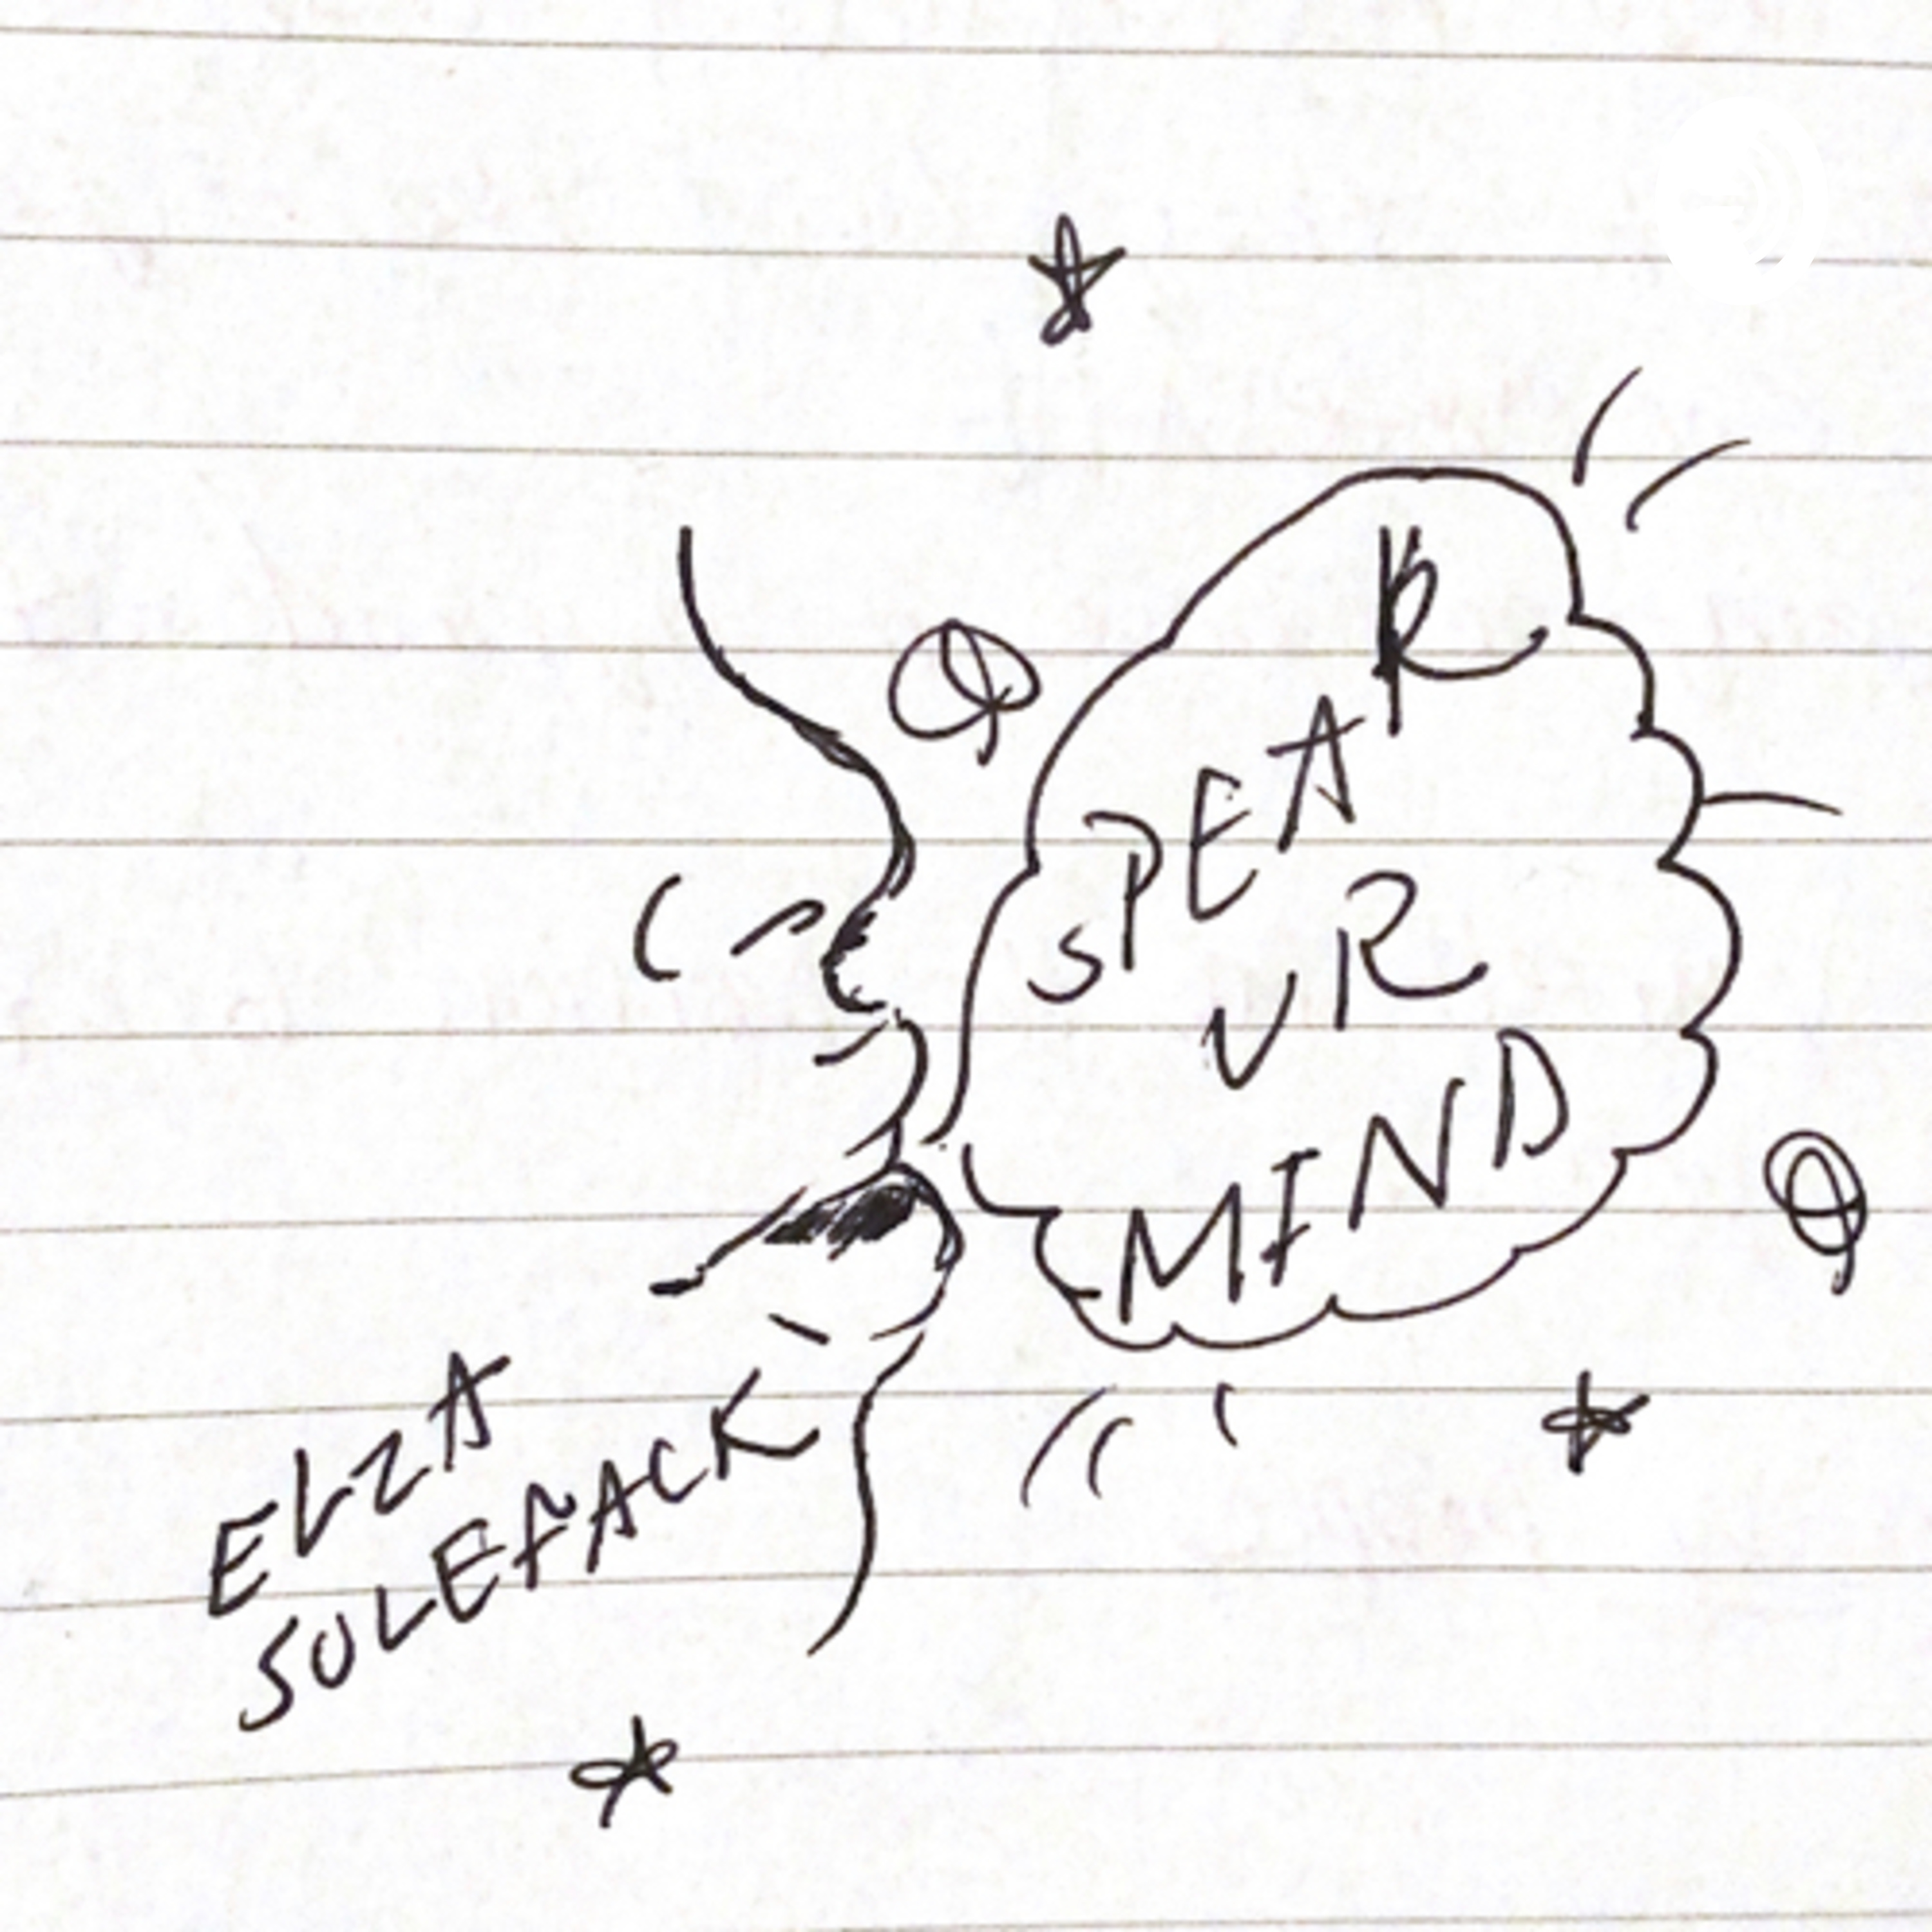 SPEAK
UR
MIND
ELZA
SULEFACK